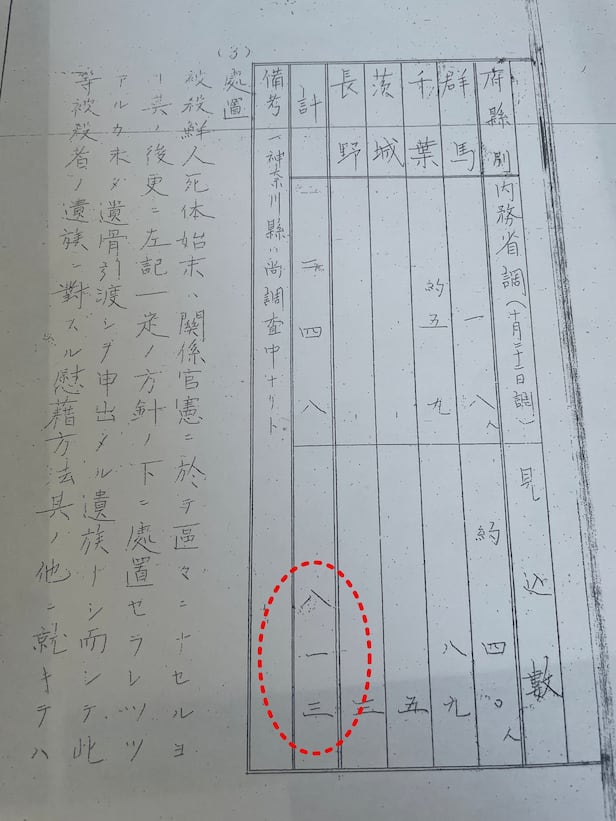 府縣別 内務省調(十月 日調) 見込數
群馬 一八人 約四〇人
千葉 約五九 八九
茨城 五
長野 三
計 二四八 八一三
備考 一神奈川縣ハ尚調査中ナリト
(3) 處置
被殺鮮人死体始末ハ關係官憲ニ於テ區々ニナセルヨ
リ其ノ後更ニ左記一定ノ方針ノ下ニ處置セラレツツ
アルカ未タ遺骨引渡シヲ申出タル遺族ナシ而シテ此
等被殺者ノ遺族ニ對スル慰藉方法其ノ他ニ就キテハ